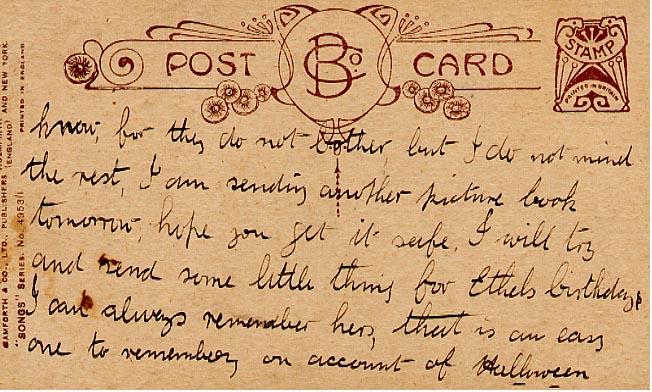 POST BCo. CARD
STAMP
PRINTED IN BRITAIN
BAMFORTH & CO., LTD., PUBLISHERS (ENGLAND) AND NEW YORK.
"SONGS" SERIES. No. 4953/1
PRINTED IN ENGLAND
know, for they do not bother, but I do not mind
the rest, I am sending another picture book
tomorrow, hope you get it safe. I will try
and send some little thing for Ethels birthday,
I can always remember hers, that is an easy
one to remember, on account of Halloween